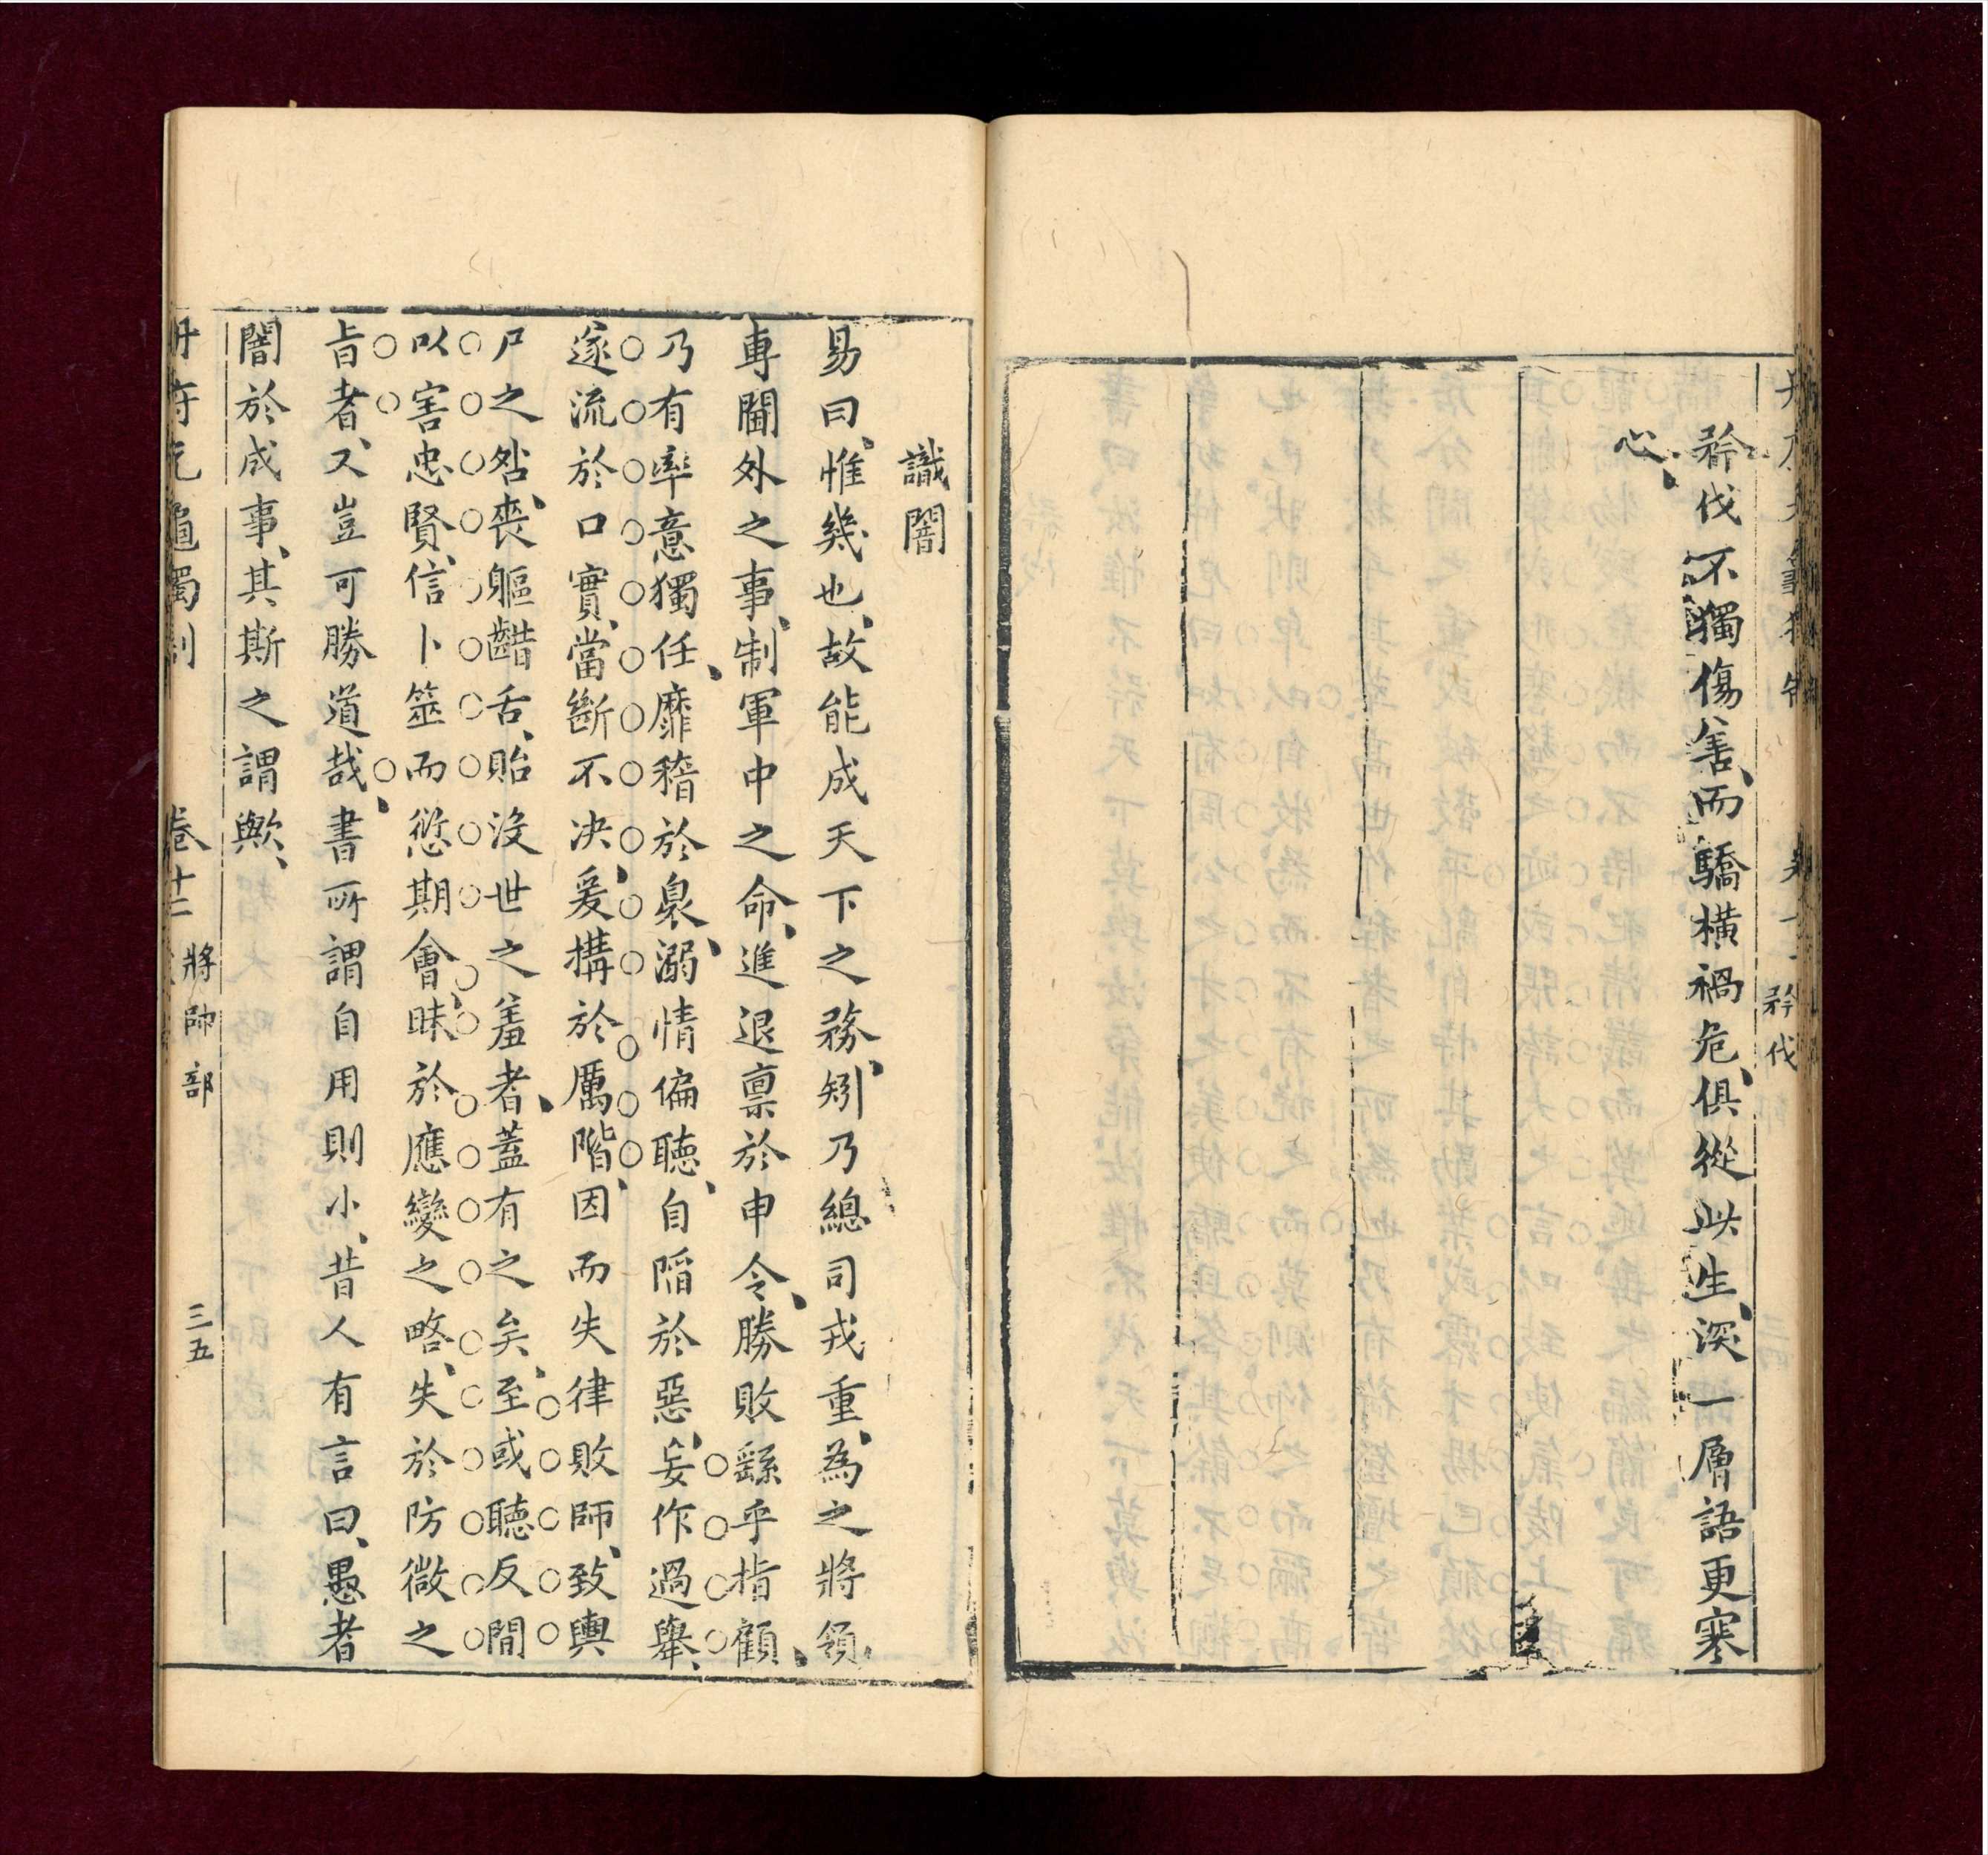 矜伐
矜伐不獨傷害、而驕橫禍危、俱從此生、深一層語更寒
心、
識闇
易曰、惟幾也、故能成天下之務、矧乃總司戎重、為之將領、
專閫外之事、制軍中之命、進退禀於申令、勝敗繇乎指顧、
乃有率意獨任、靡稽於衆、溺情偏聽、自陷於惡、妄作過舉、
遂流於口實、當斷不决、爰搆於厲階、因而失律敗師、致輿
尸之咎、喪軀齰舌、貽沒世之羞者、蓋有之矣、至或聽反間
以害忠賢、信卜筮而愆期會、昧於應變之略、失於防微之
旨者、又豈可勝道哉、書所謂自用則小、昔人有言曰、愚者
闇於成事、其斯之謂歟、
卷十二 將帥部 三五